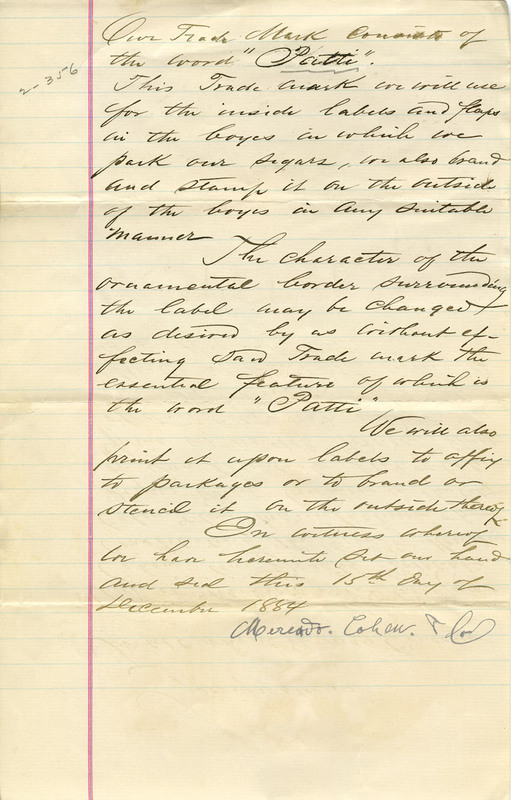 Our Trade Mark consists of
the word "Patti".
2-356
This Trade mark we will use
for the inside labels and flaps
in the boxes in which we
pack our segars, we also brand
and stamp it on the outside
of the boxes in any suitable
manner
The character of the
ornamental border surrounding
the label may be changed
as desired by us without ef-
fecting said Trade mark the
essential feature of which is
the word "Patti"
We will also
print it upon labels to affix
to packages or to brand or
stencil it on the outside thereof
In witness whereof
we have hereunto set our hand
and seal this 15th day of
December 1884
Cohen. & Co